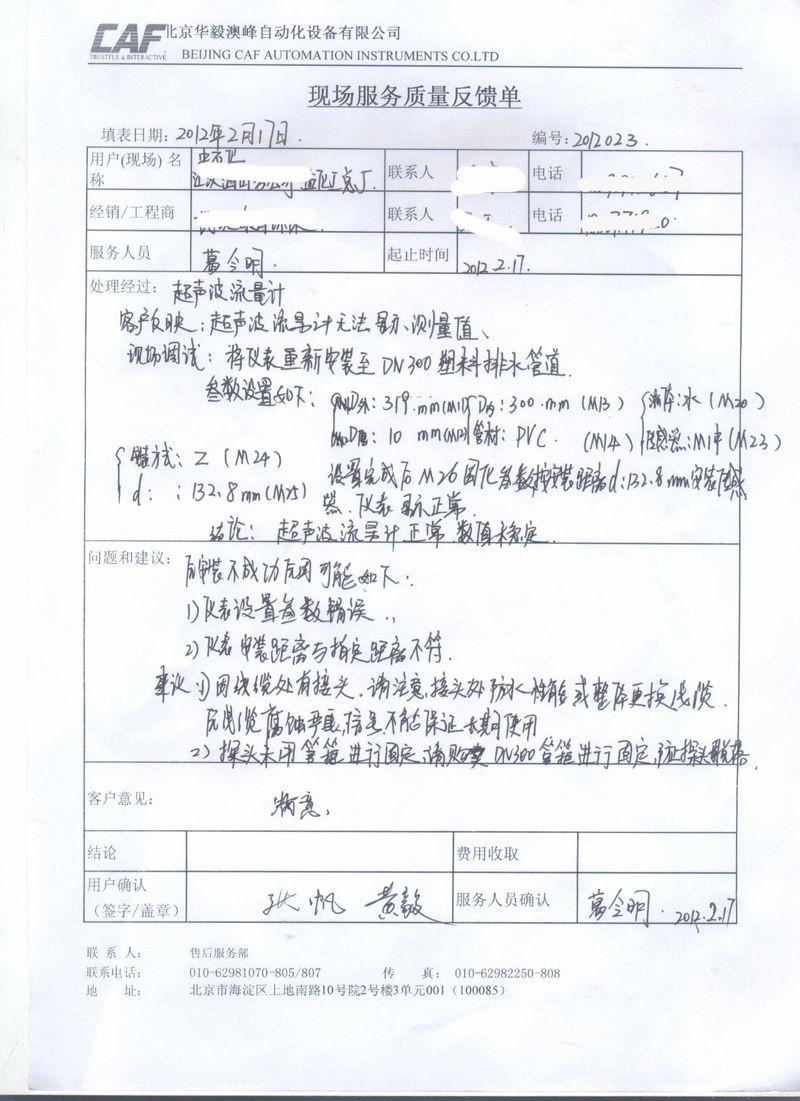 CAF
TRUSTFUL & INTERACTIVE
北京华毅澳峰自动化设备有限公司
BEIJING CAF AUTOMATION INSTRUMENTS CO.LTD
现场服务质量反馈单
填表日期：2012年2月17日.
编号：2012023.
用户(现场) 名称
联系人
电话
经销/工程商
联系人
电话
服务人员
葛令明.
起止时间
2012.2.17.
处理经过：超声波流量计
客户反映：超声波流量计无法显示测量值、
现场调试：将仪表重新安装至DN300塑料排水管道.
参数设置如下：
319.mm(M11)
300.mm (M13)
水 (M20)
10 mm(M12)
管材：PVC. (M14)
M1中 (M23)
方式：Z (M24)
d：132.8mm(M25)
设置完成后M26固化参数按安装距离d:132.8mm安装传感
器.仪表显示正常.
结论：超声波流量计正常.数值稳定.
问题和建议：
安装不成功原因可能如下.
1)仪表设置参数错误.
2)仪表安装距离与指定距离不符.
建议 1)因线缆处有接头.请注意接头处防水性能或整体更换线缆.
腐蚀严重,信号不能保证长期使用
2) 探头未用管箍进行固定,请购买DN300管箍进行固定,
客户意见：
满意.
结论
费用收取
用户确认
（签字/盖章）
张帆 黄毅
服务人员确认
葛令明. 2012.2.17
联 系 人： 售后服务部
联系电话： 010-62981070-805/807 传 真： 010-62982250-808
地 址： 北京市海淀区上地南路10号院2号楼3单元001（100085）